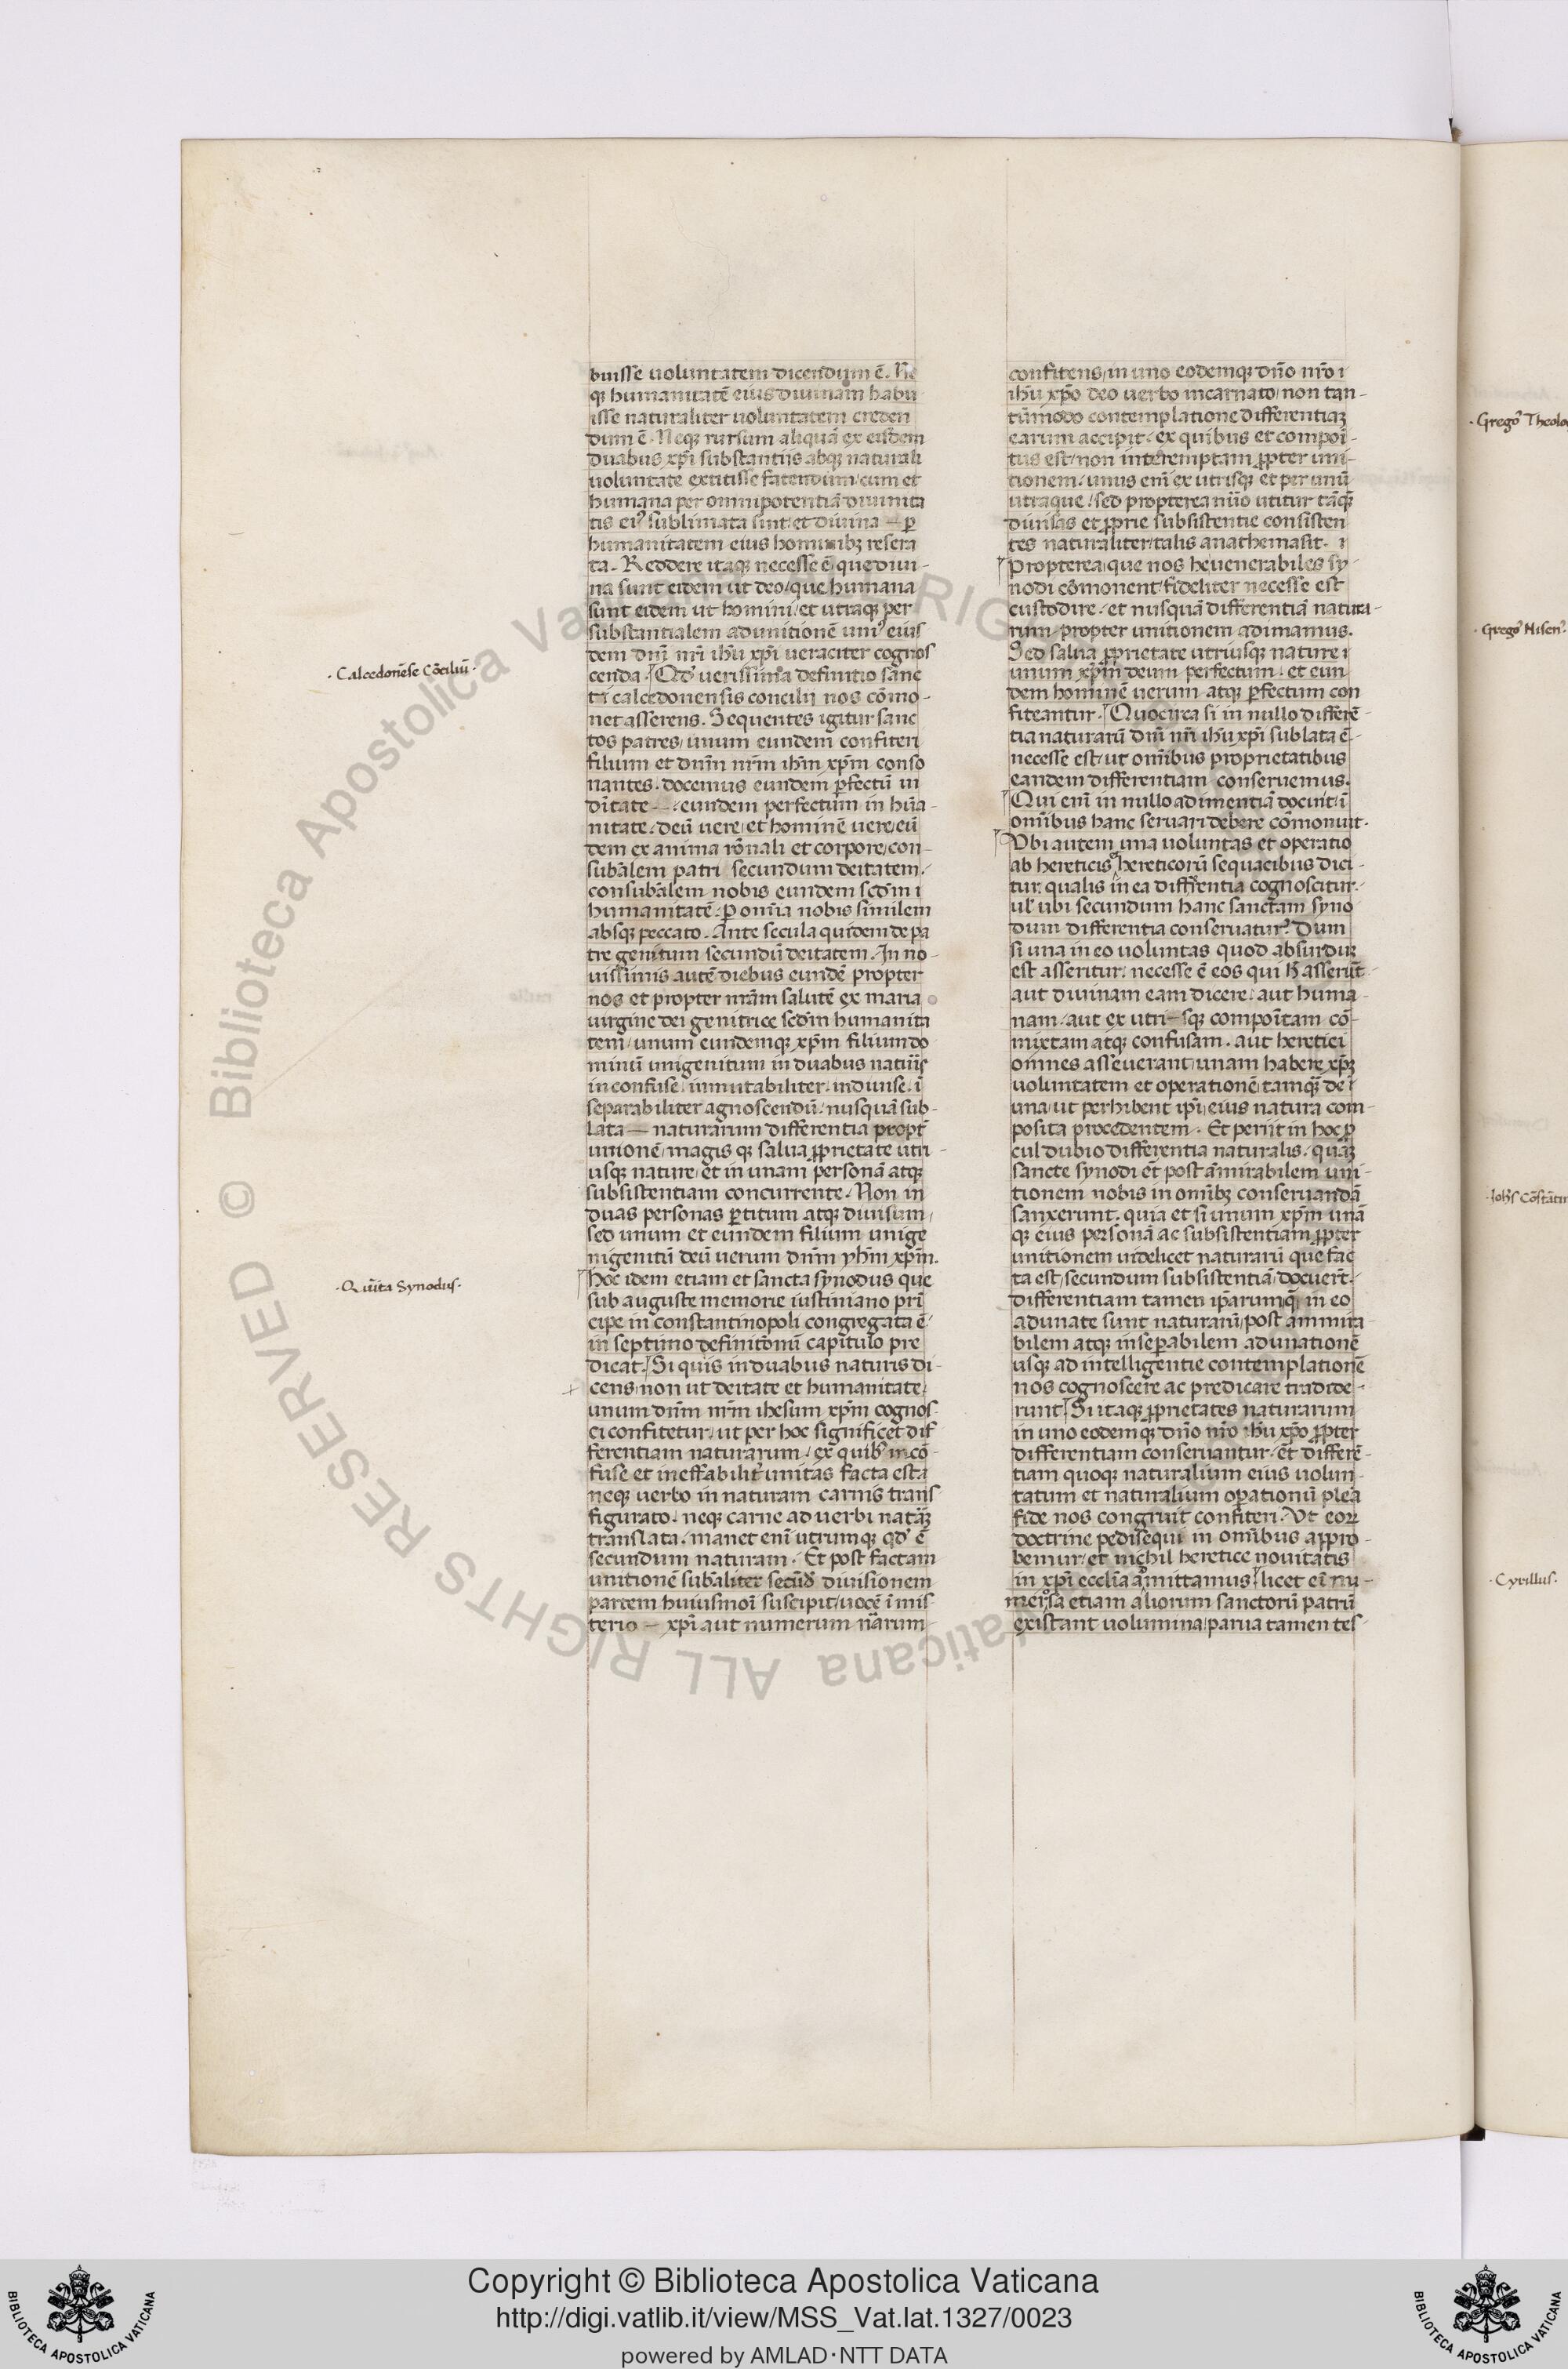 buisse uoluntatem dicendum ē. Ne
qꝫ humanitatē eius diuinam habu
isse naturaliter uoluntatem creden
dum ē. Neqꝫ rursum aliquā ex eisdem
duabus xp̄i substantijs absqꝫ naturali
uoluntate extitisse fatendum/cum et
humana per omnipotentiā diuinita
tis eiꝰ sublimata sint/et diuina — ꝑ
humanitatem eius hominibꝫ resera
ta. Reddere itaqꝫ necesse ē que diui-
na sunt eidem ut deo/que humana
sunt eidem ut homini/et utraqꝫ per
substantialem adunitionē uniꝰ eius
dem dn̄i nr̄i ihū xp̄i ueraciter cognos
cenda. Qd' uerissima definitio sanc
ti calcedonensis concilij nos cōmo-
net asserens. Sequentes igitur sanc
tos patres/unum eundem confiteri
filium et dn̄m nr̄m ihm̄ xp̄m conso
nantes. docemus eundem ꝑfectū in
dītate —. eundem perfectum in hūa-
nitate. deū uere/et hominē uere/eū
dem ex anima rōnali et corpore/con-
subālem patri secundum deitatem.
consubālem nobis eundem scdm̄
humanitatē. Ꝑ omīa nobis similem
absqꝫ peccato. Ante secula quidem de pa
tre genitum secundū deitatem. In no-
uissimis autē diebus eundē propter
nos et propter nr̄am salutē ex maria
uirgine dei genitrice scdm̄ humanita
tem/unum eundemqꝫ xp̄m filium do
minū unigenitum in duabus naturis
in confuse. inmutabiliter. indiuise. ī
separabiliter agnoscendū. nusquā sub-
lata — naturarum differentia propt̄
unionē/magis qꝫ salua ꝓprietate utri-
usqꝫ nature/et in unam personā atqꝫ
subsistentiam concurrente. Non in
duas personas ꝑtitum atqꝫ diuisum/
sed unum et eundem filium unige
nigenitū deū uerum dn̄m yhm̄ xp̄m.
hoc idem etiam et sancta synodus que
sub auguste memorie iustiniano prī
cipe in constantinopoli congregata ē/
in septimo definitōnū capitulo pre
dicat. Si quis in duabus naturis di-
cens/non ut deitate et humanitate/
unum dn̄m nr̄m ihesum xp̄m cognos-
ci confitetur/ut per hoc significet dif
ferentiam naturarum/ex quibꝰ incō-
fuse et ineffabilit' unitas facta est/
neqꝫ uerbo in naturam carnis trans
figurato. neqꝫ carne ad uerbi natāꝫ
translata. manet enī utrumqꝫ qd' ē
secundum naturam. Et post factam
unitionē subāliter secūd' diuisionem
partem huiusmoī suscipit/uocē ī mis
terio — xp̄i aut numerum nāarum
confitens/in uno eodemqꝫ dn̄o nr̄o
ihū xp̄o deo uerbo incarnato/non tan-
tūmodo contemplatione differentiaꝫ
earum accipit/ex quibus et compoī-
tus est/non interemptam ꝓpter uni-
tionem/unus enī ex utrisqꝫ et per unū
utraque/sed propterea nūo utitur tāqꝫ
diuisas et ꝓprie subsistentie consisten
tes naturaliter/talis anathema sit.
Propterea/que nos he uenerabiles sy-
nodi cōmonent/fideliter necesse est
custodire/et nusquā differentiā natura-
rum/propter unitionem adimamus.
Sed salua ꝓprietate utriusqꝫ nature
unum xp̄m deum perfectum/et eun
dem hominē uerum atqꝫ ꝑfectum con
fiteantur. Quocirca si in nullo differē-
tia naturarū dn̄i nr̄i ihū xp̄i sublata ē-
necesse est/ut omībus proprietatibus
eandem differentiam conseruemus.
Qui enī in nullo adimentiā docuit/ī
omībus hanc seruari debere cōmonuit.
Vbi autem una uoluntas et operatio
ab hereticis hereticorū sequacibus dici-
tur. qualis in ea diffrentia cognoscitur.
ul' ubi secundum hanc sanctam syno
dum differentia conseruatur? Dum
si una in eo uoluntas quod absurduꝫ
est asseritur/necesse ē eos qui h̄ asserūt
aut diuinam eam dicere/aut huma-
nam/aut ex utri—sqꝫ compoītam cō-
mixtam atqꝫ confusam. aut heretici
omnes asseuerant/unam habere xp̄ꝫ
uoluntatem et operationē/tamqꝫ de
una/ut perhibent ip̄i/eius natura com-
posita procedentem. Et periit in hoc ꝓ
cul dubio differentia naturalis/quaꝫ
sancte synodi et post āmirabilem uni-
tionem nobis in omībꝫ conseruandā
sanxerunt. quia et si unum xp̄m unā
qꝫ eius personā ac subsistentiam ꝓpter
unitionem uidelicet naturarū que fac
ta est/secundum subsistentiā docuer̄t.
differentiam tamen ip̄arumqꝫ in eo
adunate sunt naturarū/post ammira
bilem atqꝫ inseꝑabilem adunationē
usqꝫ ad intelligentie contemplationē
nos cognoscere ac predicare tradide-
runt Si itaqꝫ ꝓprietates naturarum
in uno eodemqꝫ dn̄o nr̄o ihū xp̄o ꝓpter
differentiam conseruantur/et differē-
tiam quoqꝫ naturalium eius uolun-
tatum et naturalium oꝑationū plea
fide nos congruit confiteri. Vt eoꝝ
doctrine pedisequi in omībus appro-
bemur/et nichil heretice nouitatis
in xp̄i eccl̄ia āmittamus licet eī nu-
merosa etiam aliorum sanctorū patrū
existant uolumina/parua tamen tes-
.Calcedonēse Cōciliū.
.Quīta Synodus.
.Gregoꝰ Theolo
.Gregoꝰ Nisenꝰ.
.Johs̄ Cōstātin
.Cyrillus.
© Biblioteca Apostolica Vaticana ALL RIGHTS RESERVED
Copyright © Biblioteca Apostolica Vaticana
http://digi.vatlib.it/view/MSS_Vat.lat.1327/0023
powered by AMLAD·NTT DATA
BIBLIOTECA APOSTOLICA VATICANA
BIBLIOTECA APOSTOLICA VATICANA